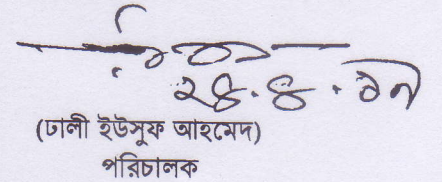 ২৪.৪.১৭
(ঢালী ইউসুফ আহমেদ)
পরিচালক